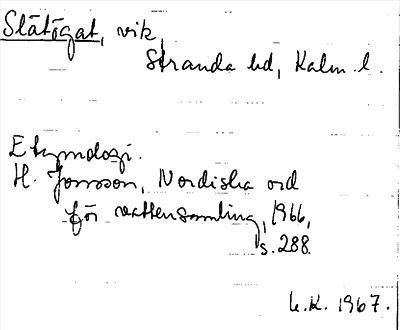 Slätögat, vik,
Stranda hd, Kalm. l.
Etymologi.
H. Jonsson, Nordiska ord
för vattensamling, 1966,
s. 288.
L.K. 1967.